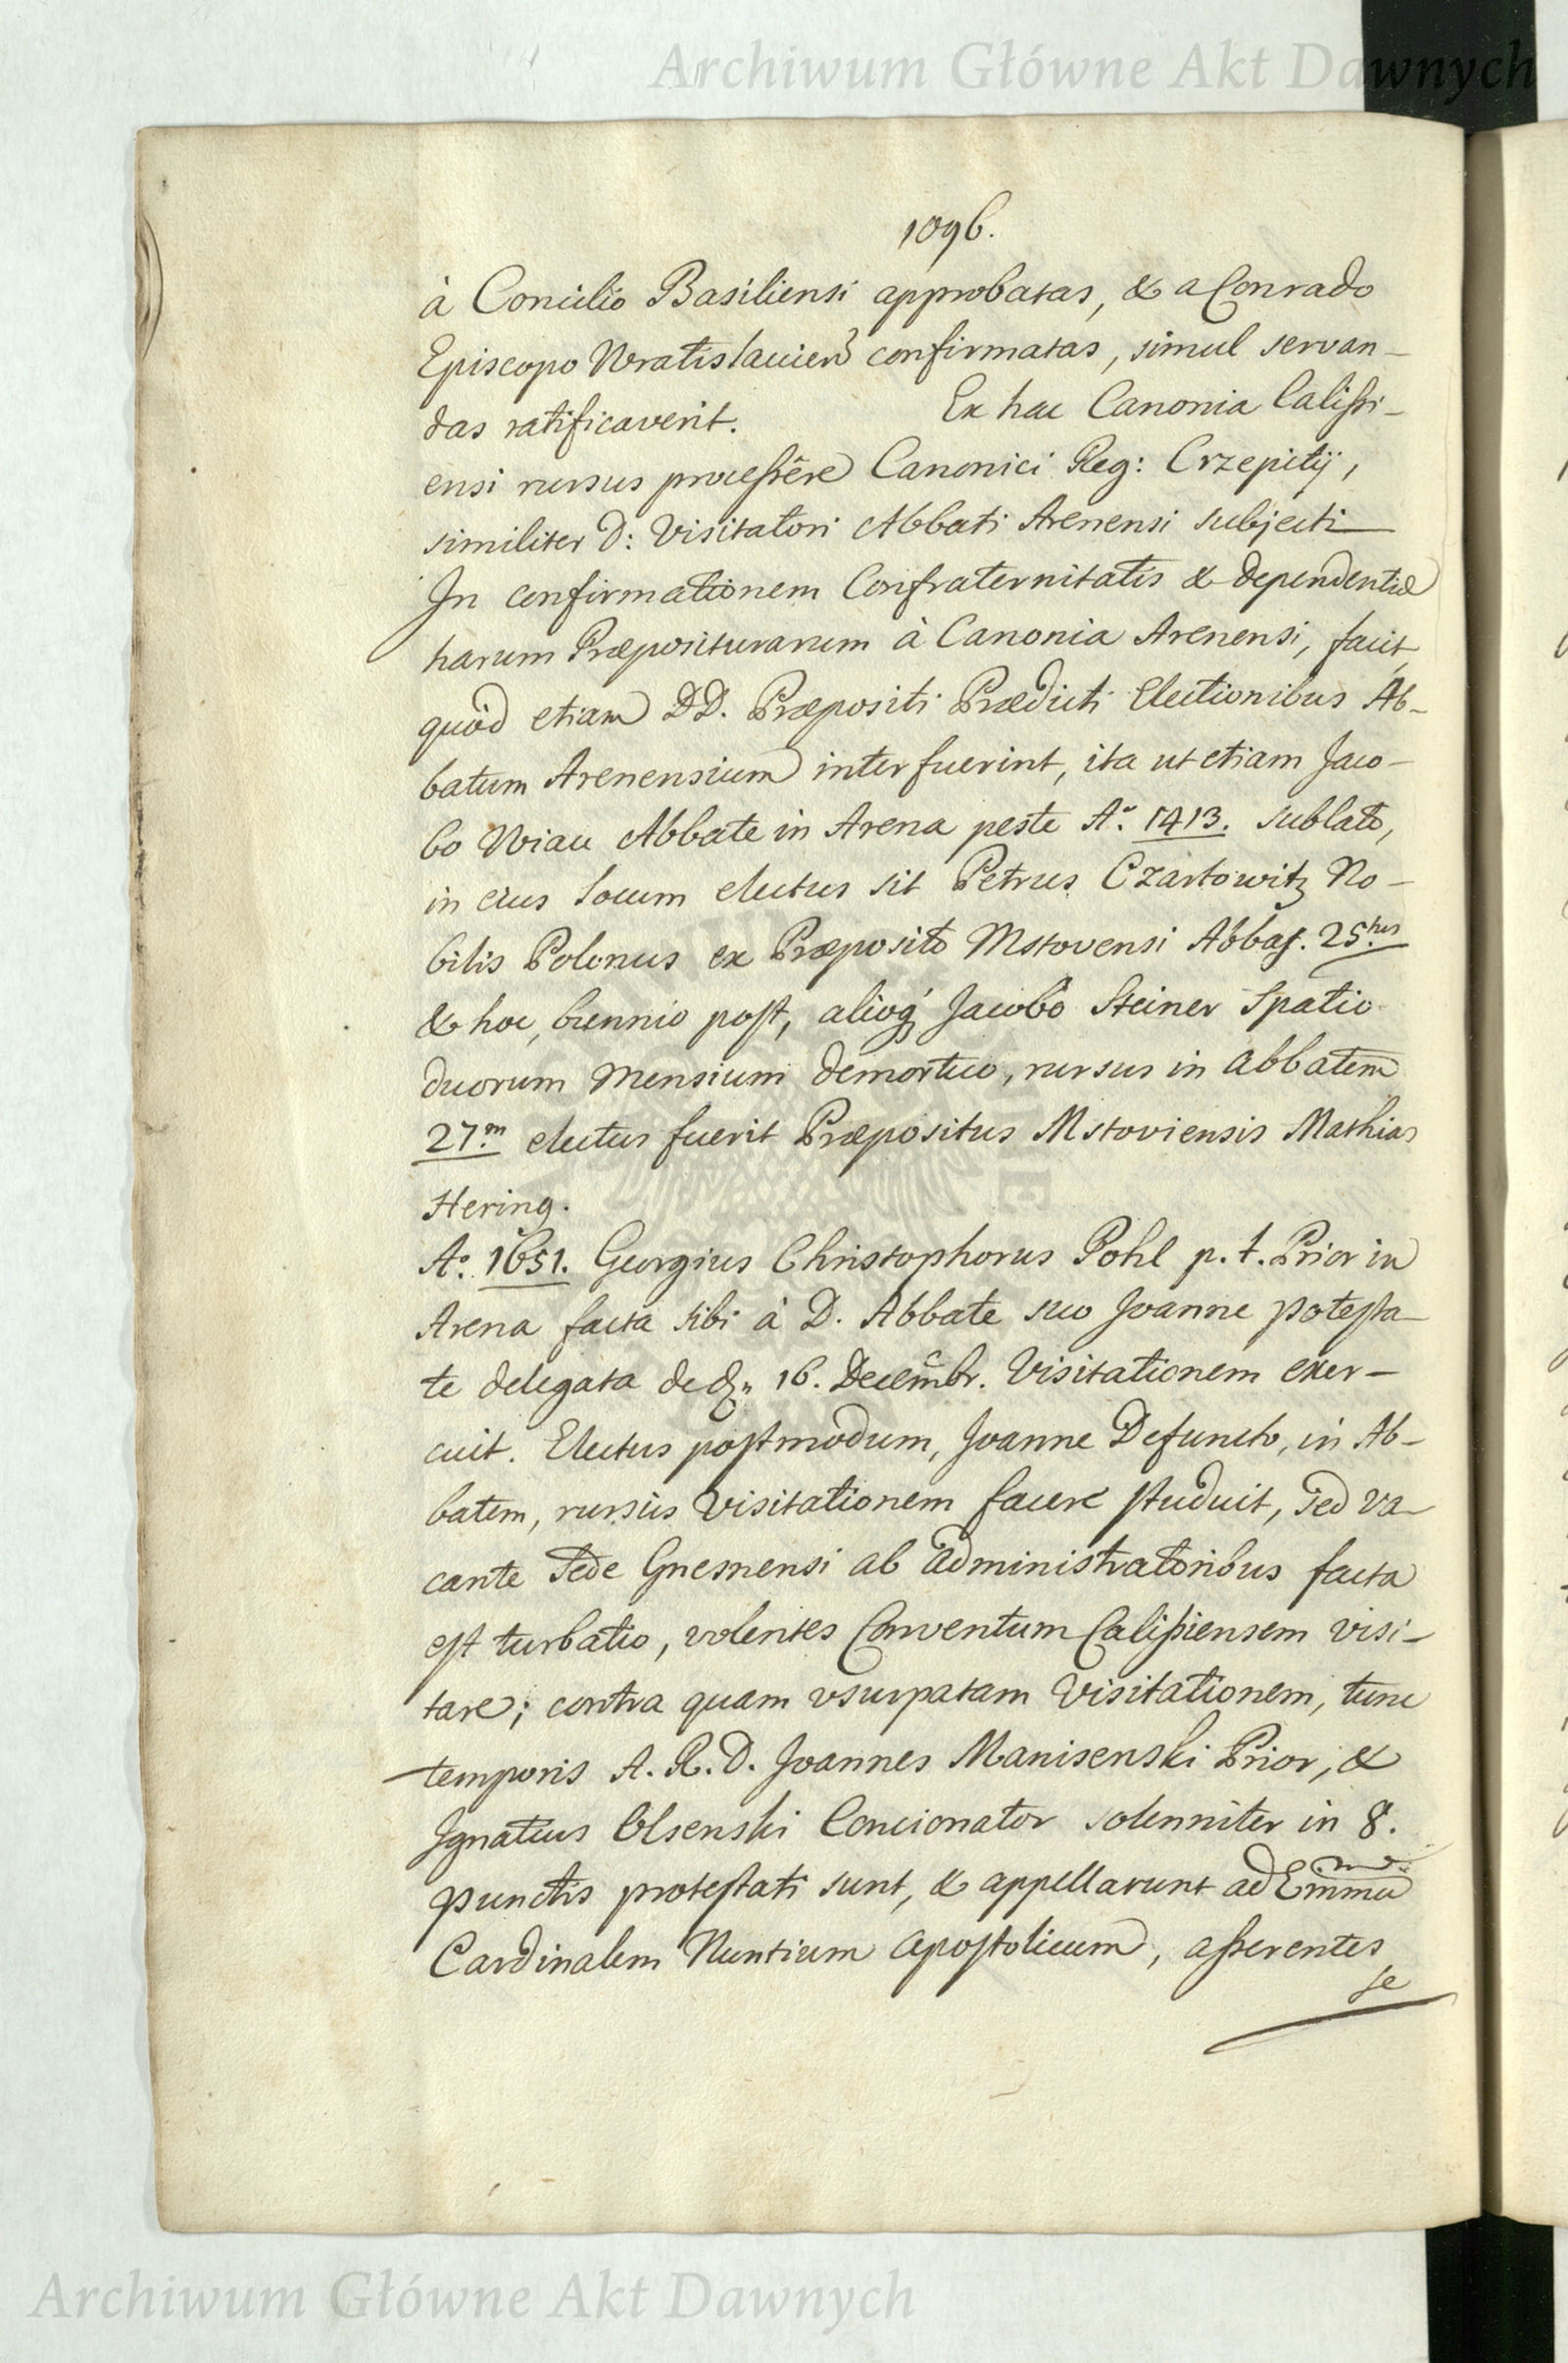 Archiwum Główne Akt Dawnych
1096.
à Concilio Basiliensi approbatas, & a Conrado
Episcopo Wratislavien confirmatas, simul servan-
das ratificaverit. Ex hac Canonia Calissi-
ensi rursus processêre Canonici Reg: Crzepitÿ,
similiter D: Visitatori Abbati Arenensi subjecti
In confirmationem Confraternitatis & dependentiæ
harum Præpositurarum à Canonia Arenensi, facit,
quòd etiam DD. Præpositi Prædicti Electionibus Ab-
batum Arenensium interfuerint, ita ut etiam Jaco-
bo Abbate in Arena peste A.º 1413. sublato,
in eius locum electus sit Petrus Czartowitz No-
bilis Polonus ex Præposito Mstovensi Abbas. 25.tus
& hoc, biennio post, alioq́ Jacobo Steiner Spatio
duorum Mensium demortuo, rursus in Abbatem
27.m electus fuerit Præpositus Mstoviensis Mathias
Hering.
A.º 1651. Georgius Christophorus Pohl p. t. Prior in
Arena facta sibi à D. Abbate suo Joanne potesta-
te delegata de 16. Decembr. Visitationem exer-
cuit. Electus postmodum, Joanne Defuncto, in Ab-
batem, rursùs Visitationem facere studuit, sed va-
cante sede Gnesnensi ab administratoribus facta
est turbatio, volentes Conventum Calissiensem visi-
tare; contra quam usurpatam Visitationem, tunc
temporis A. R. D. Joannes Manisenski Prior, &
Ignatius Olsenski Concionator solenniter in 8.
punctis protestati sunt, & appellarunt ad Emmu
Cardinalem Nuntium Apostolicum, asserentes
se
Archiwum Główne Akt Dawnych